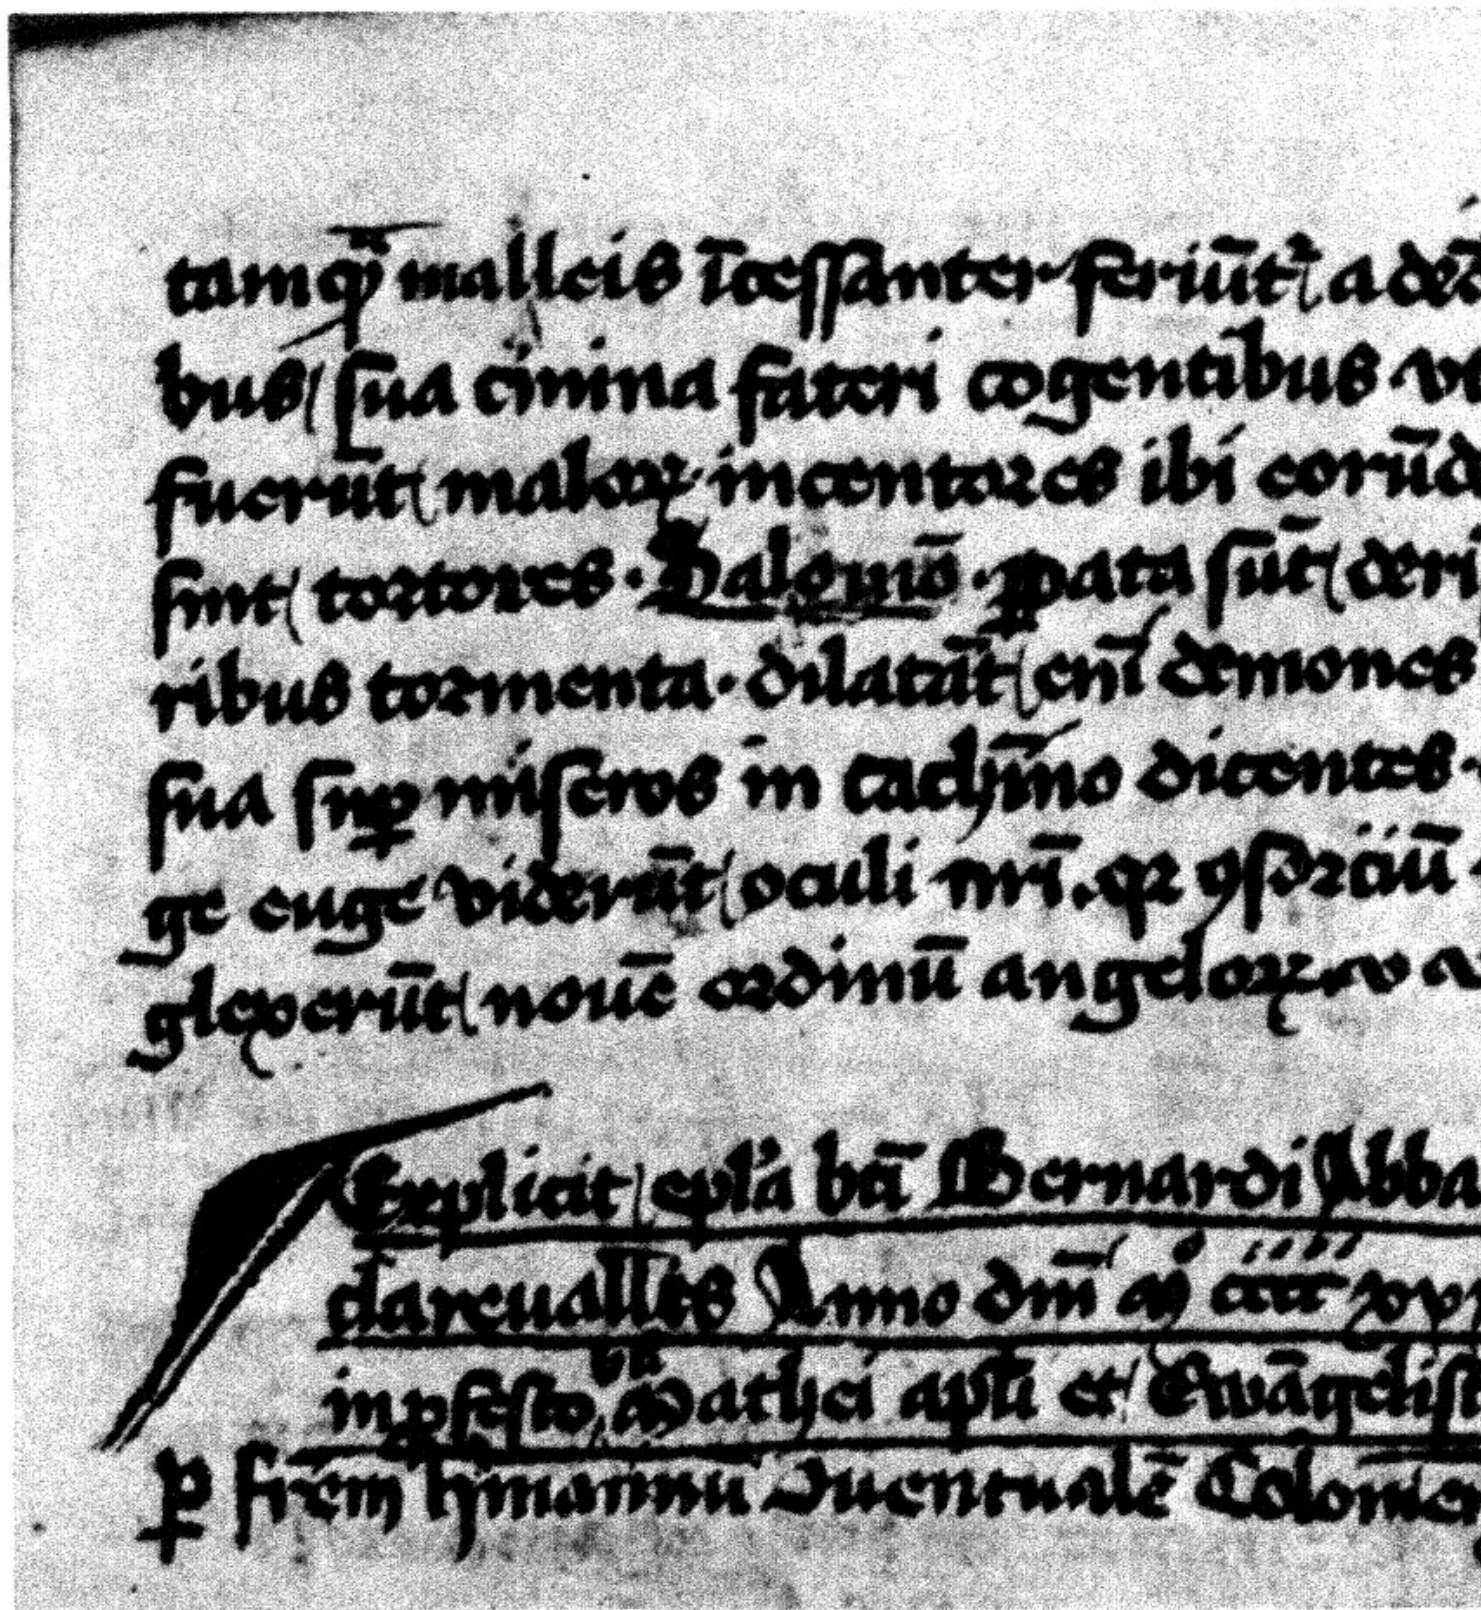 tamqᷓ malleis īcessanter feriūt᷑ a de
bus sua cīmina fateri cogentibus v
fuerūt maloꝝ incentores ibi eorūd
sint tortores · Salomō · ꝑata sūt deri
ribus tormenta · dilatāt enī demones
sua suꝑ miseros in cachīno dicentes ·
ge euge viderūt oculi nrī · qꝛ ꝯsorciū
glexerūt nouē ordinū angeloꝝ · v a
Explicit epla btī Bernardi Abba
clareuallēs Anno dnī mͦ cccc xv
in ꝓfesto bti Mathei apli et Ewāgelist
ꝑ frēm hmannū Juentualē Colonien